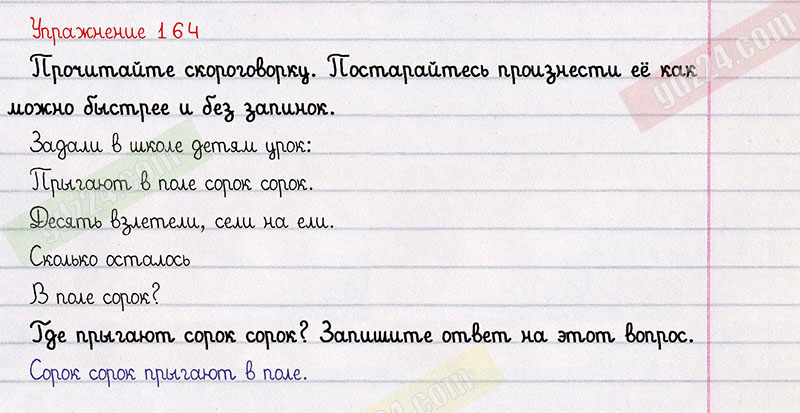 Упражнение 164
Прочитайте скороговорку. Постарайтесь произнести её как
можно быстрее и без запинок.
Задали в школе детям урок:
Прыгают в поле сорок сорок.
Десять взлетели, сели на ели.
Сколько осталось
В поле сорок?
Где прыгают сорок сорок? Запишите ответ на этот вопрос.
Сорок сорок прыгают в поле.
gdz24.com
gdz24.com
gdz24.com